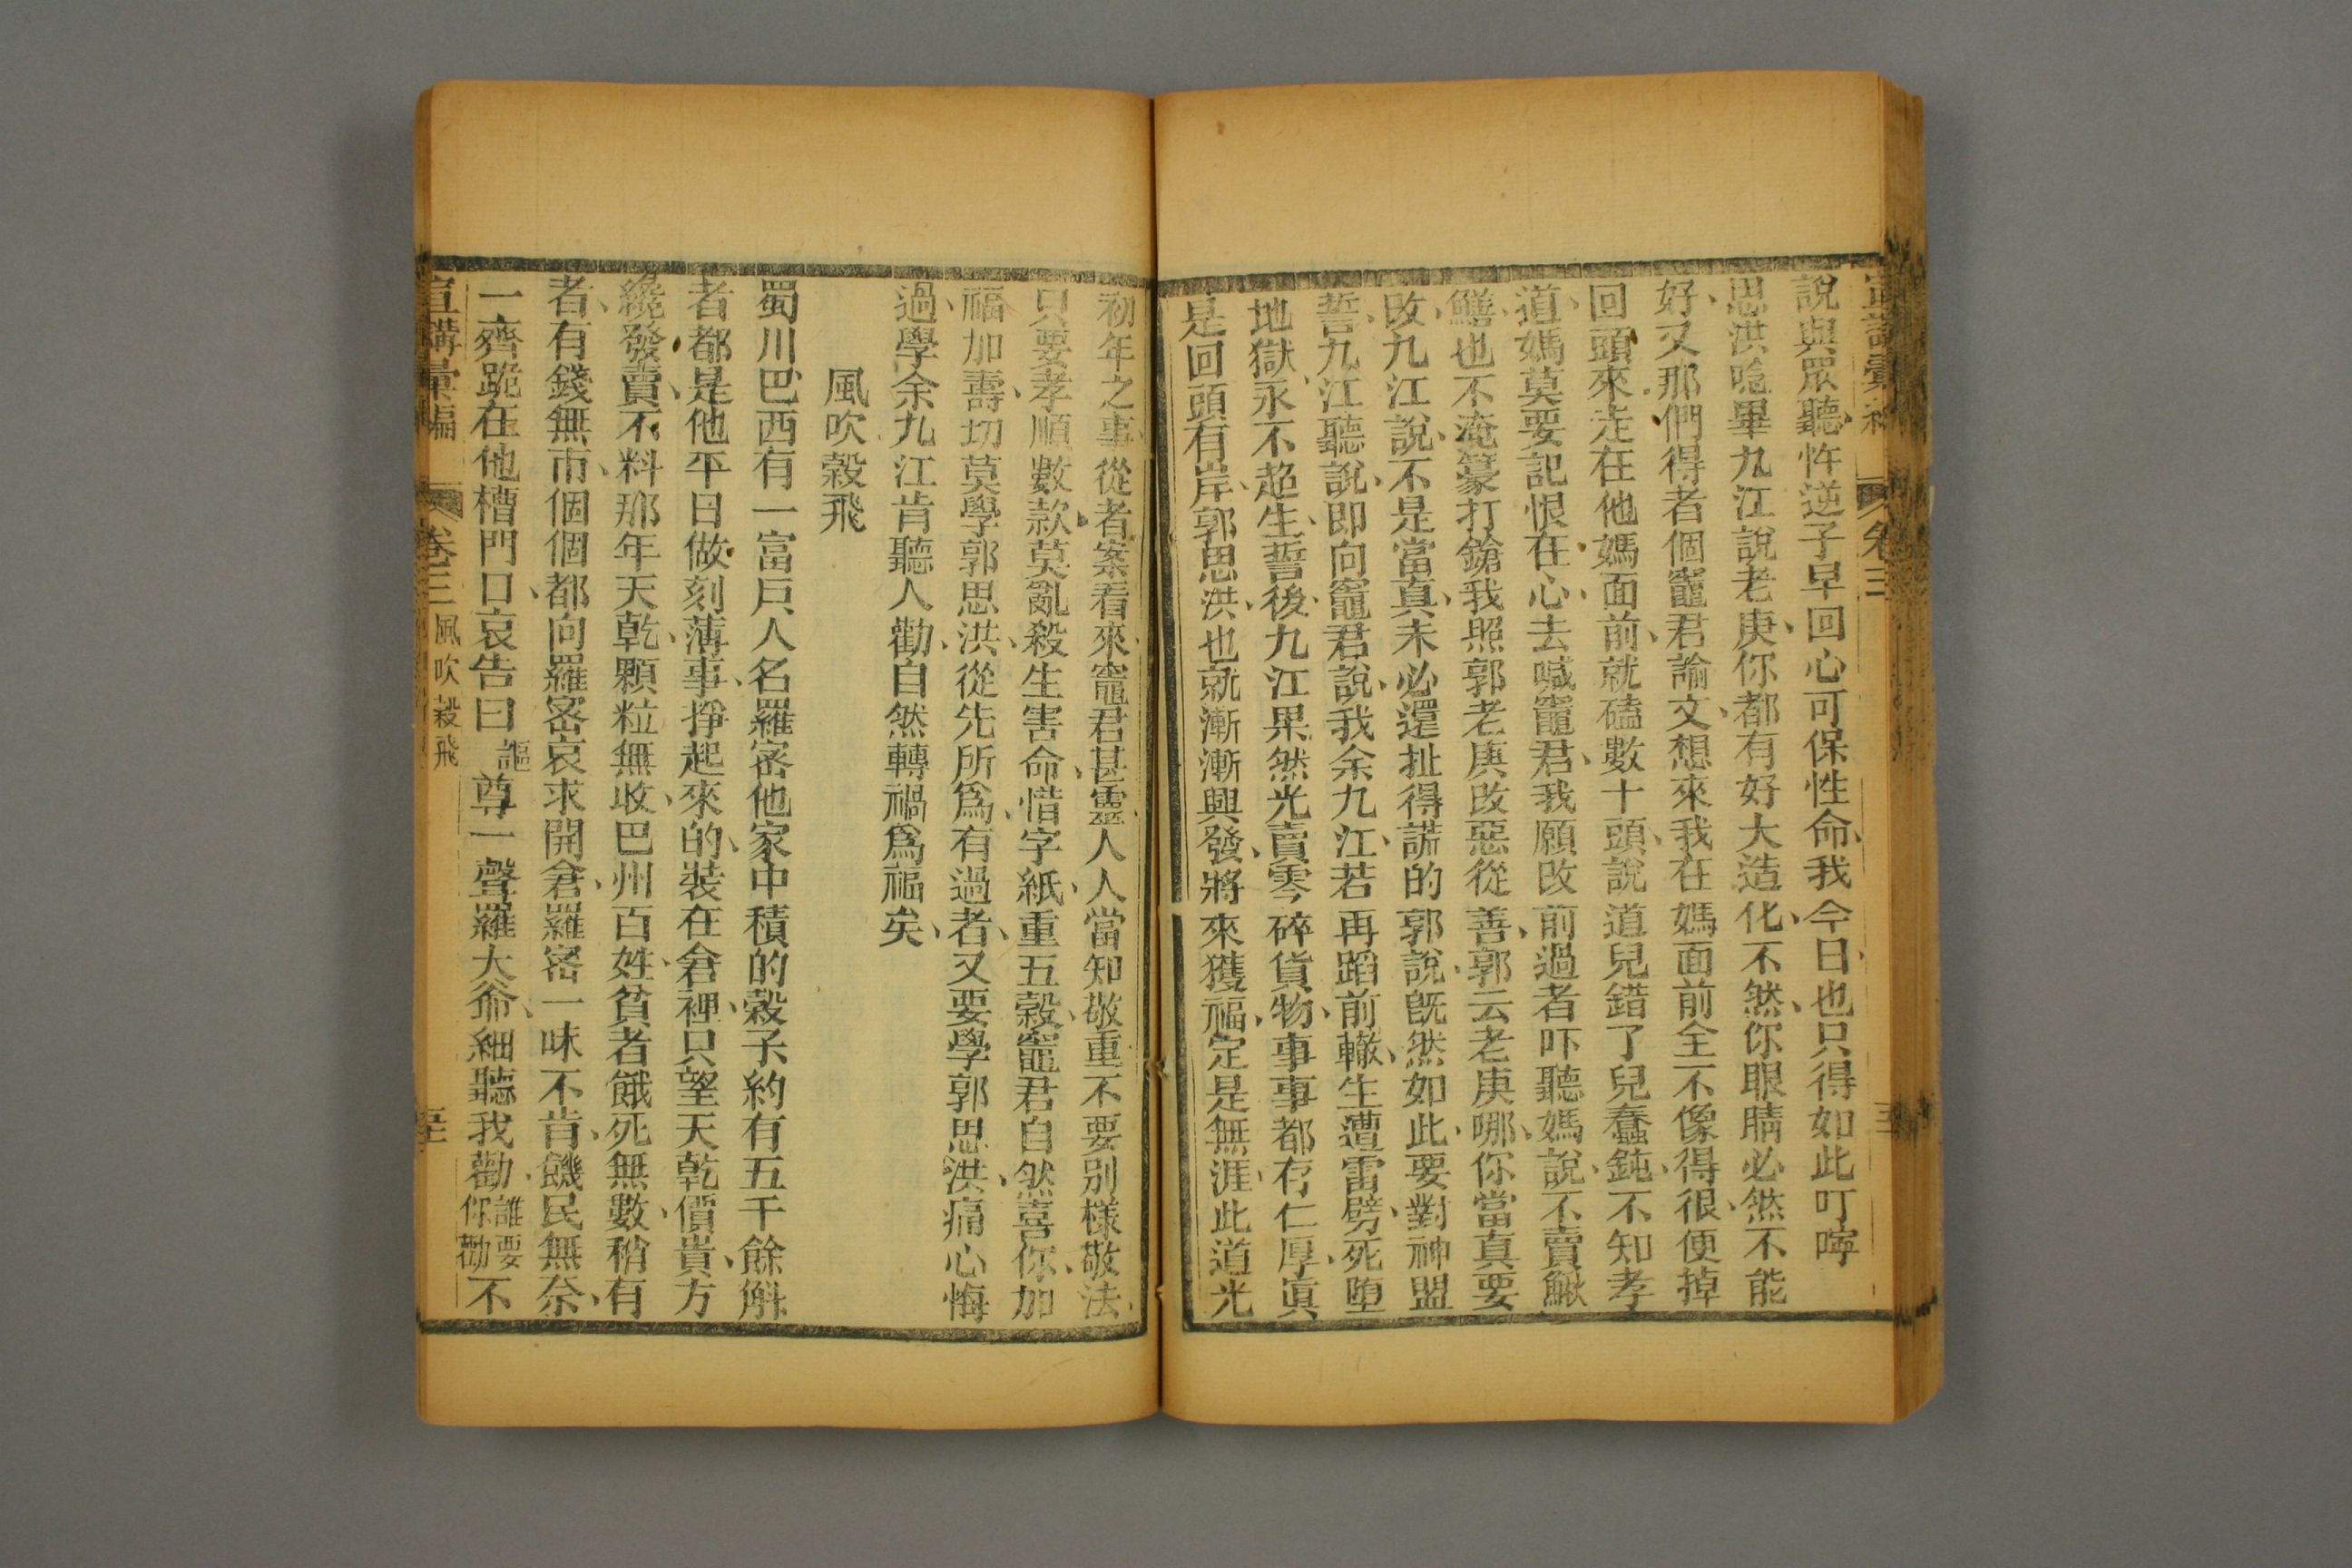 卷三
說與眾聽忤逆子早回心可保性命我今日也只得如此叮嚀
思洪唸畢九江說老庚你都有好大造化不然你眼睛必然不能
好又那們得者個竈君諭文想來我在媽面前全不像得很便掉
回頭來走在他媽面前就磕數十頭說道兒錯了兒蠢鈍不知孝
道媽莫要記恨在心去喊竈君我願改前過者吓聽媽說不賣鰍
鱔也不淹籇打鎗我照郭老庚改惡從善郭云老庚哪你當真要
改九江說不是當真未必還扯得謊的郭說旣然如此要對神盟
誓九江聽說即向竈君說我余九江若再蹈前轍生遭雷劈死墮
地獄永不超生誓後九江果然光賣零碎貨物事事都存仁厚眞
是回頭有岸郭思洪也就漸漸興發將來獲福定是無涯此道光
初年之事從者案看來竈君甚靈人人當知敬重不要別樣敬法
只要孝順數款莫亂殺生害命惜字紙重五穀竈君自然喜你加
福加壽切莫學郭思洪從先所爲有過者又要學郭思洪痛心悔
過學余九江肯聽人勸自然轉禍爲福矣
風吹穀飛
蜀川巴西有一富戶人名羅密他家中積的穀子約有五千餘斛
者都是他平日做刻薄事掙起來的裝在倉裡只望天乾價貴方
纔發賣不料那年天乾顆粒無收巴州百姓貧者餓死無數稍有
者有錢無市個個都向羅密哀求開倉羅密一味不肯饑民無奈
一齊跪在他槽門口哀告曰謳尊一聲羅大爺細聽我勸誰要你勸不
宣講彙編 卷三 風吹穀飛